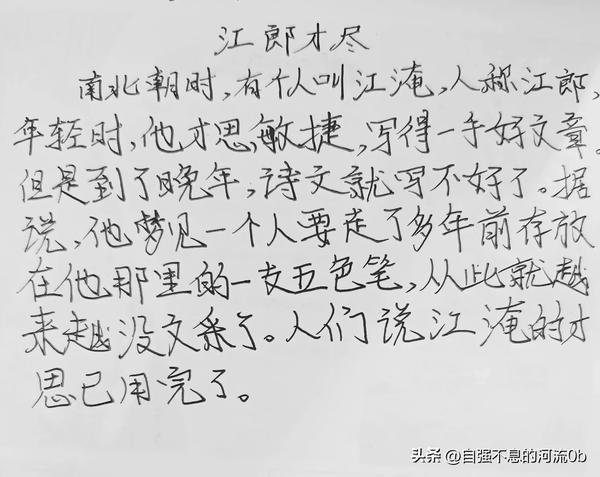 江郎才尽
南北朝时,有个人叫江淹,人称江郎,
年轻时,他才思敏捷,写得一手好文章。
但是到了晚年,诗文就写不好了。据
说,他梦见一个人要走了多年前存放
在他那里的一支五色笔,从此就越
来越没文采了。人们说江淹的才
思已用完了。
头条 @自强不息的河流0b